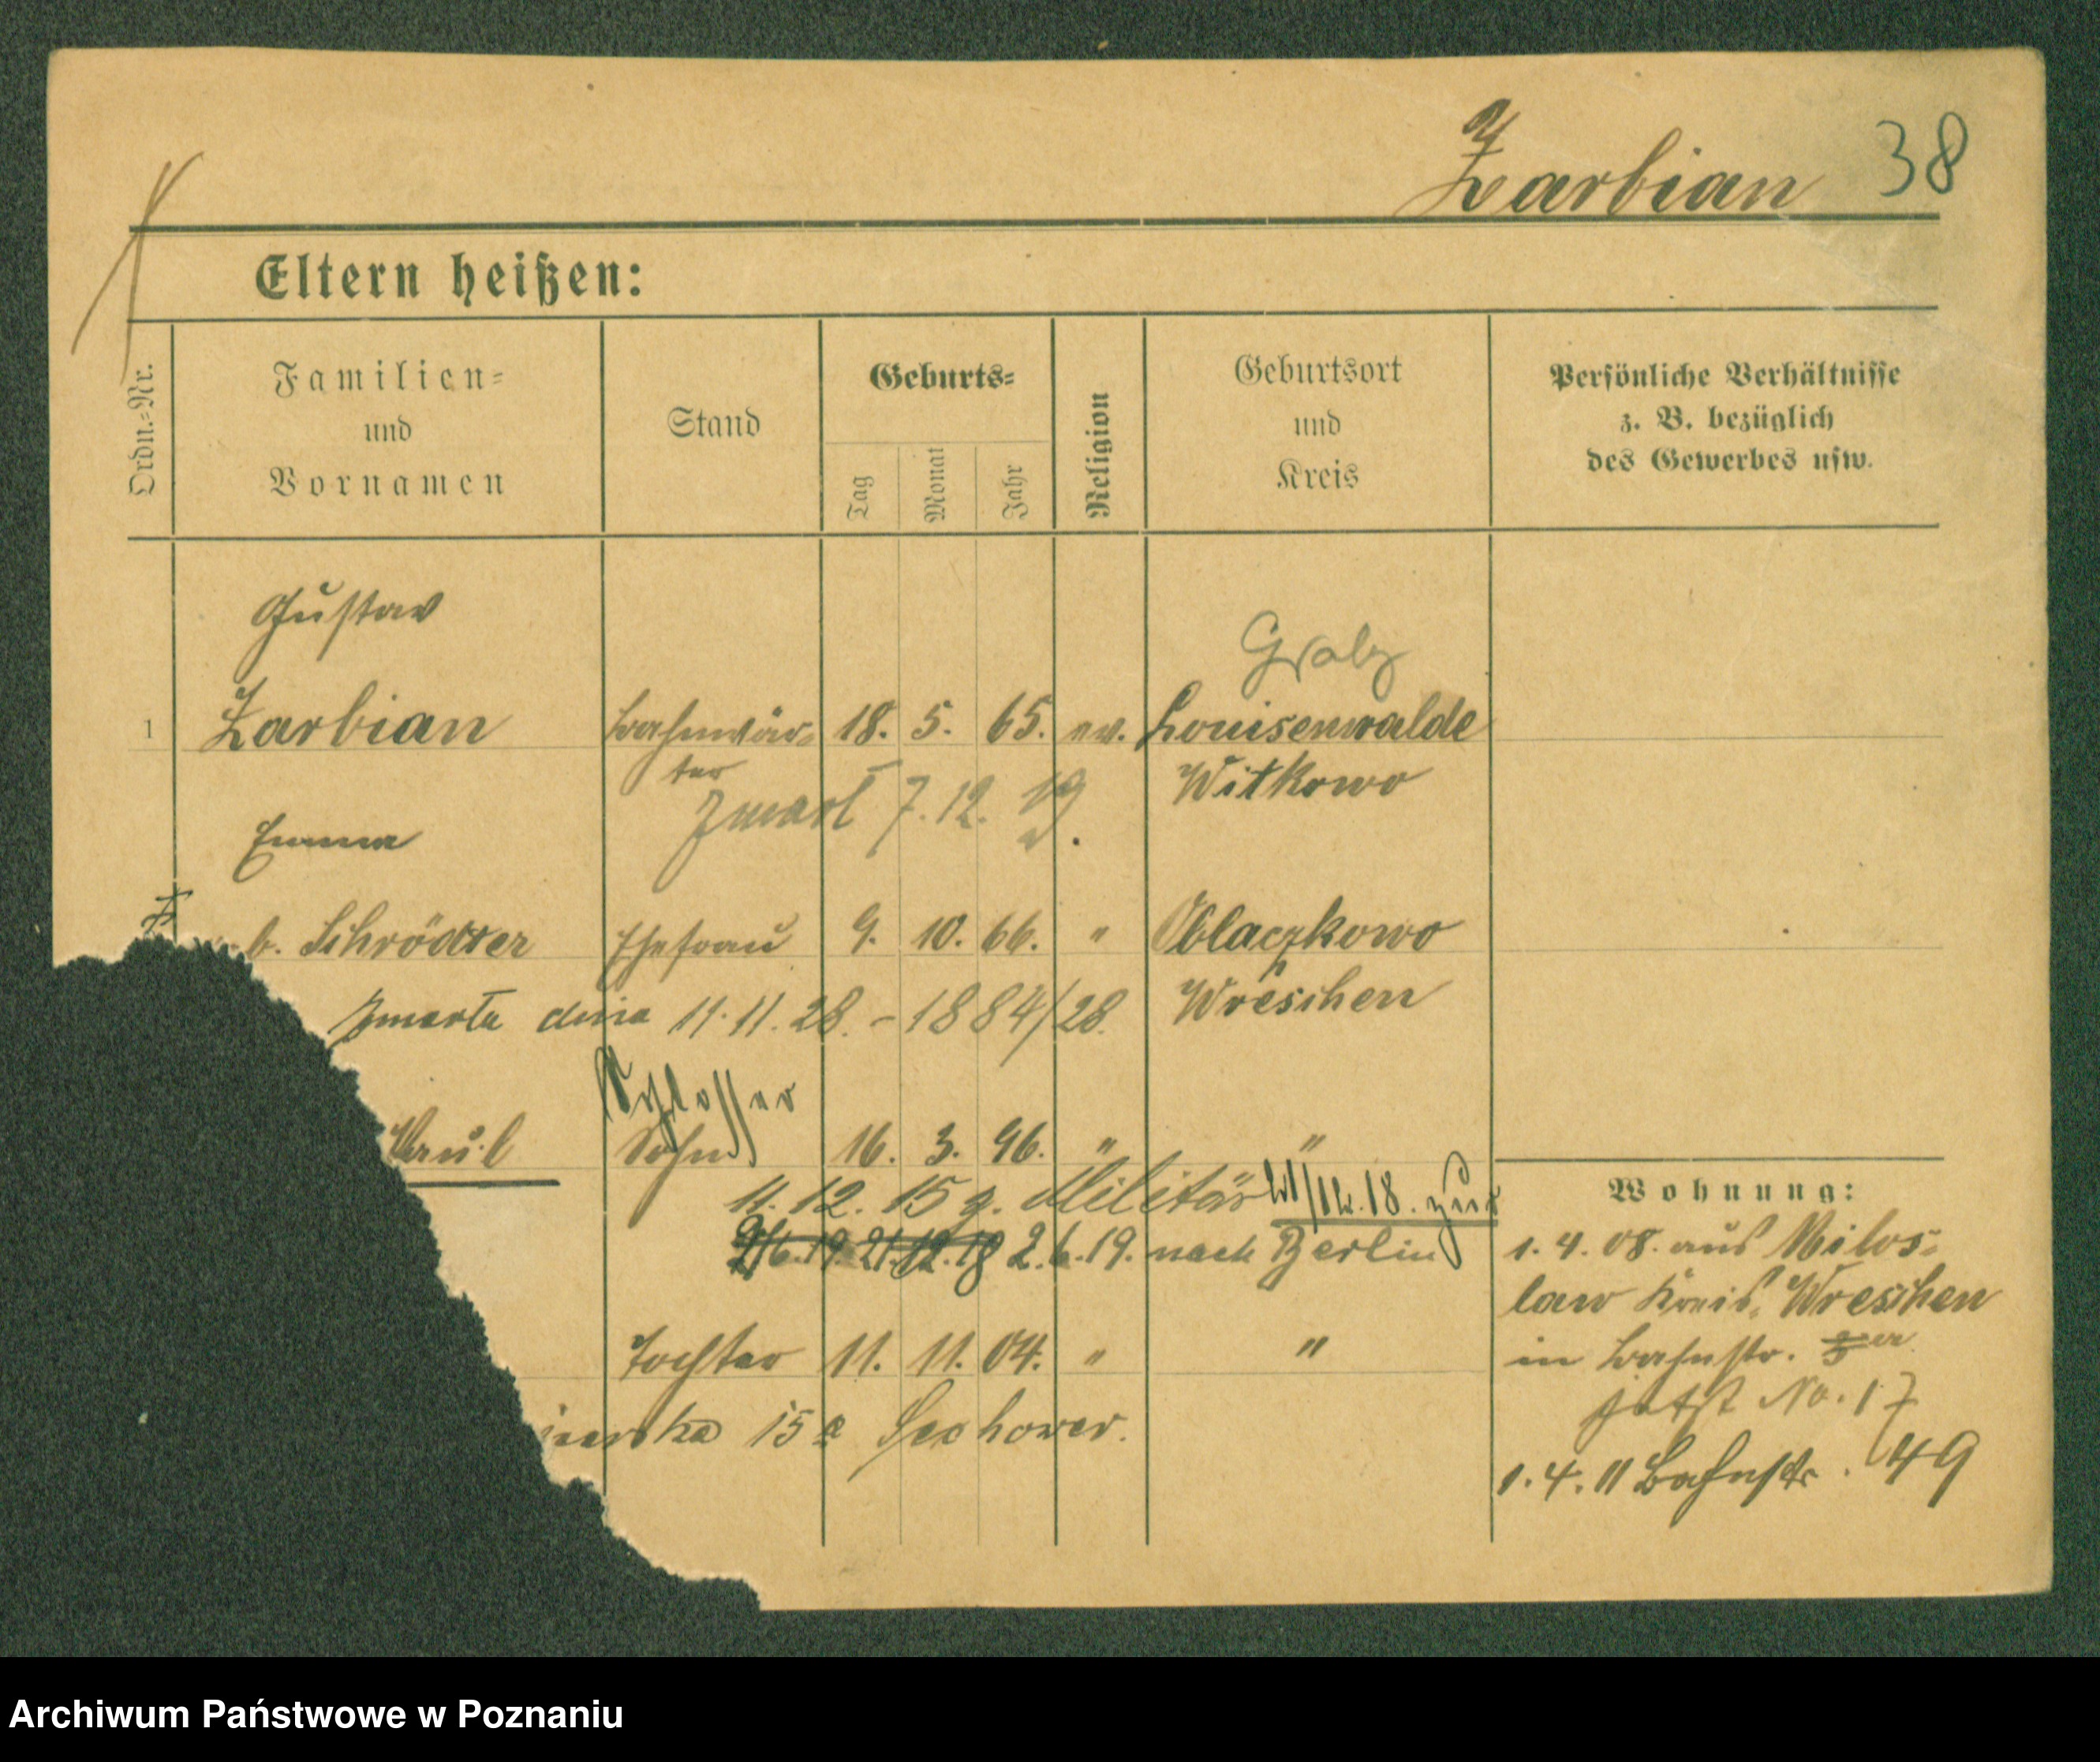 Zarbian 38
Eltern heißen:
Ordn.-Nr.
Familien-
und
Vornamen
Stand
Geburts-
Tag
Monat
Jahr
Religion
Geburtsort
und
Kreis
Persönliche Verhältnisse
z. B. bezüglich
des Gewerbes usw.
Gustav
1 Zarbian Bahnwär- 18. 5. 65. ev. Louisenwalde
ter Witkowo
Zmarł 7.12. 19.
Emma
b. Schröder Ehefrau 9. 10. 66. " Oblaczkowo
Wreschen
Zmarła dnia 11.11.28. - 1884/28.
Schlosser
Paul Sohn 16. 3. 96. " "
11. 12. 15 z. Militär 21/12.18. zur
2/6.19. 21.12.18 2.6.19. nach Berlin
Tochter 11. 11. 04. " "
15a
Wohnung:
1. 4. 08. aus Milos-
law Kreis Wreschen
in Bahnstr.
jetzt No. 17
1. 4. 11 Bahnstr. 49
Archiwum Państwowe w Poznaniu